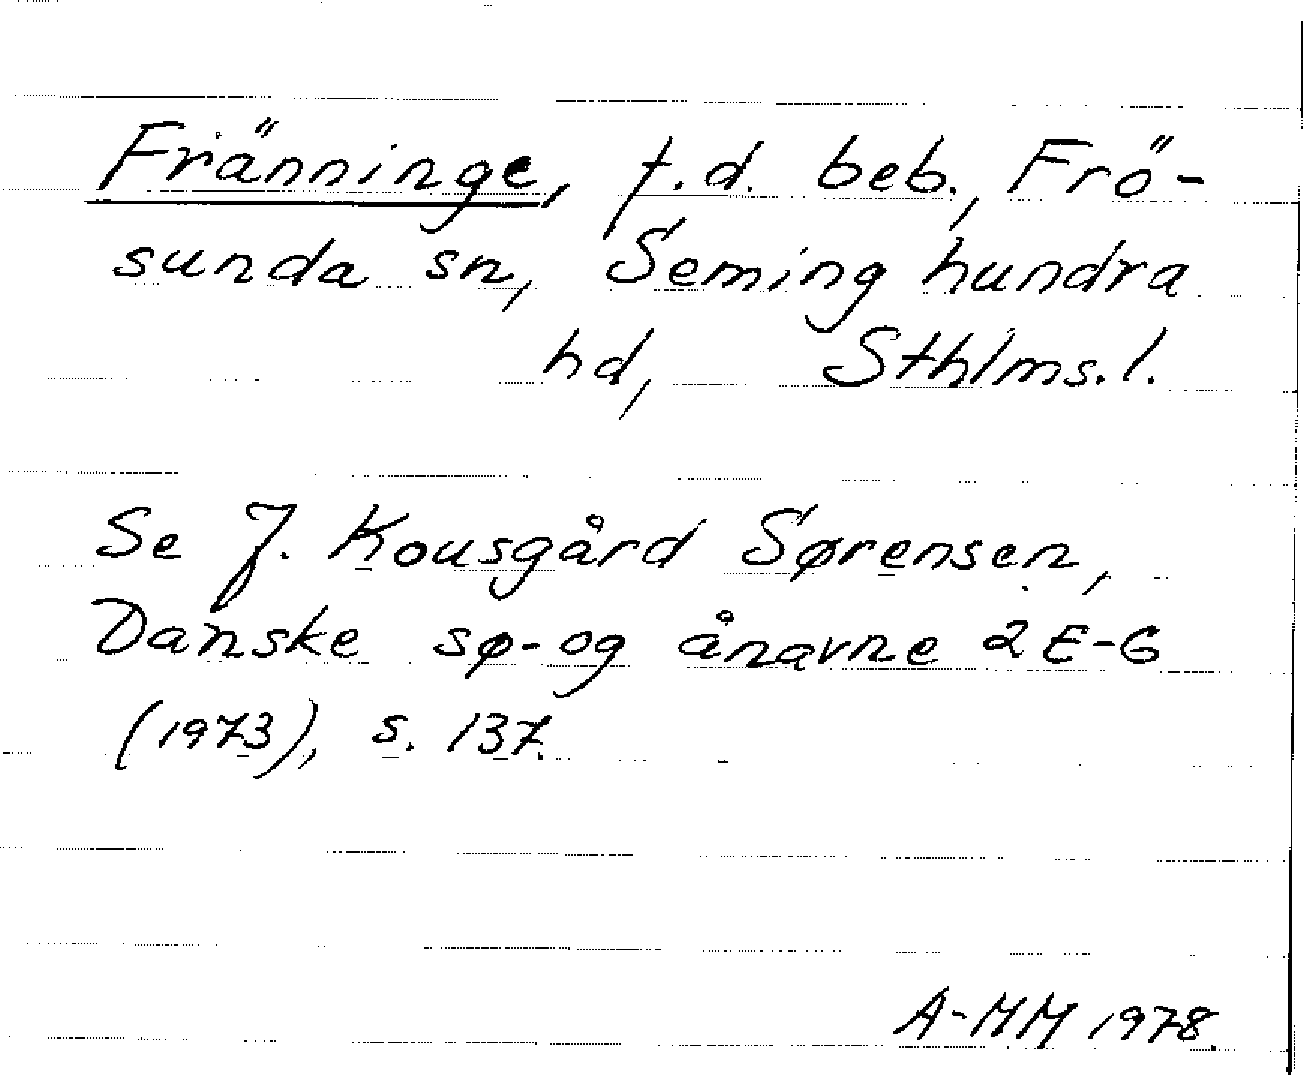 Fränninge, f.d. beb., Frö-
sunda sn, Seminghundra
hd, Sthlms.l.
Se J. Kousgård Sørensen,
Danske sø- og ånavne 2 E-G
(1973), s. 137.
A-MM 1978.